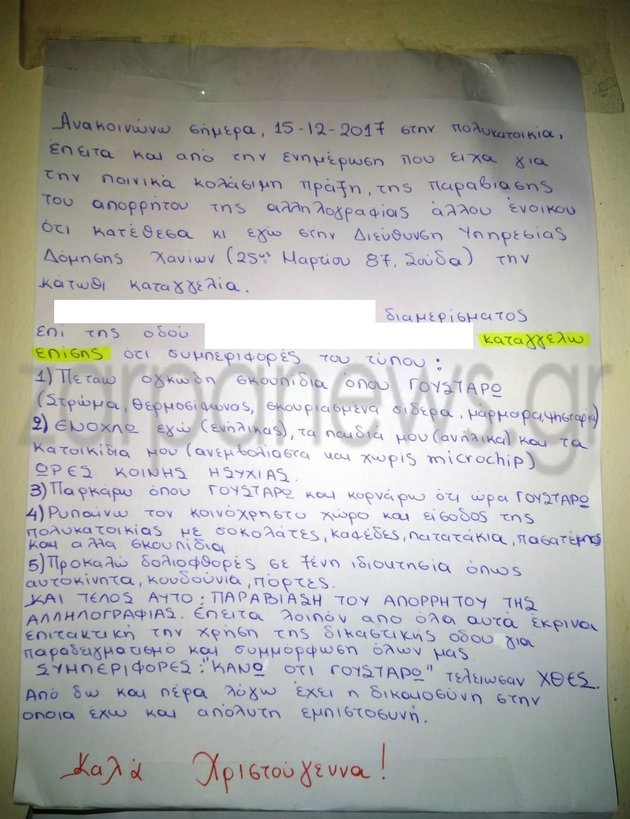 Ανακοινώνω σήμερα, 15-12-2017 στην πολυκατοικία,
έπειτα και από την ενημέρωση που είχα για
την ποινικά κολάσιμη πράξη, της παραβίασης
του απορρήτου της αλληλογραφίας άλλου ένοικου
ότι κατέθεσα κι εγώ στην Διεύθυνση Υπηρεσίας
Δόμησης Χανίων (25ης Μαρτίου 87. Σούδα) την
κάτωθι καταγγελία.
διαμερίσματος
επί της οδού καταγγέλω
επίσης ότι συμπεριφορές του τύπου:
1) Πετάω ογκώδη σκουπίδια όπου ΓΟΥΣΤΑΡΩ
(Στρώμα, θερμοσίφωνας, σκουριασμένα σίδερα, μάρμαρα, ψησταριά)
2) ΕΝΟΧΛΩ εγώ (ενήλικας), τα παιδιά μου (ανήλικα) και τα
κατοικίδια μου (ανεμβολίαστα και χωρίς microchip)
ΩΡΕΣ ΚΟΙΝΗΣ ΗΣΥΧΙΑΣ.
3) Παρκάρω όπου ΓΟΥΣΤΑΡΩ και κορνάρω ότι ώρα ΓΟΥΣΤΑΡΩ
4) Ρυπαίνω τον κοινόχρηστο χώρο και είσοδος της
πολυκατοικίας με σοκολάτες, καφέδες, πατατάκια, πασατέμπος
και άλλα σκουπίδια
5) Προκαλώ δολιοφθορές σε ξένη ιδιοκτησία όπως
αυτοκίνητα, κουδούνια, πόρτες.
ΚΑΙ ΤΕΛΟΣ ΑΥΤΟ: ΠΑΡΑΒΙΑΣΗ ΤΟΥ ΑΠΟΡΡΗΤΟΥ ΤΗΣ
ΑΛΛΗΛΟΓΡΑΦΙΑΣ. Έπειτα λοιπόν απο όλα αυτά έκρινα
επιτακτική την χρήση της δικαστικής οδού για
παραδειγματισμό και συμμόρφωση όλων μας.
ΣΥΜΠΕΡΙΦΟΡΕΣ: "ΚΑΝΩ ΟΤΙ ΓΟΥΣΤΑΡΩ" τελείωσαν ΧΘΕΣ.
Από δω και πέρα λόγω έχει η δικαιοσύνη στην
οποία έχω και απόλυτη εμπιστοσυνή.
Καλά Χριστούγεννα!
zarpanews.gr
zarpanews.gr